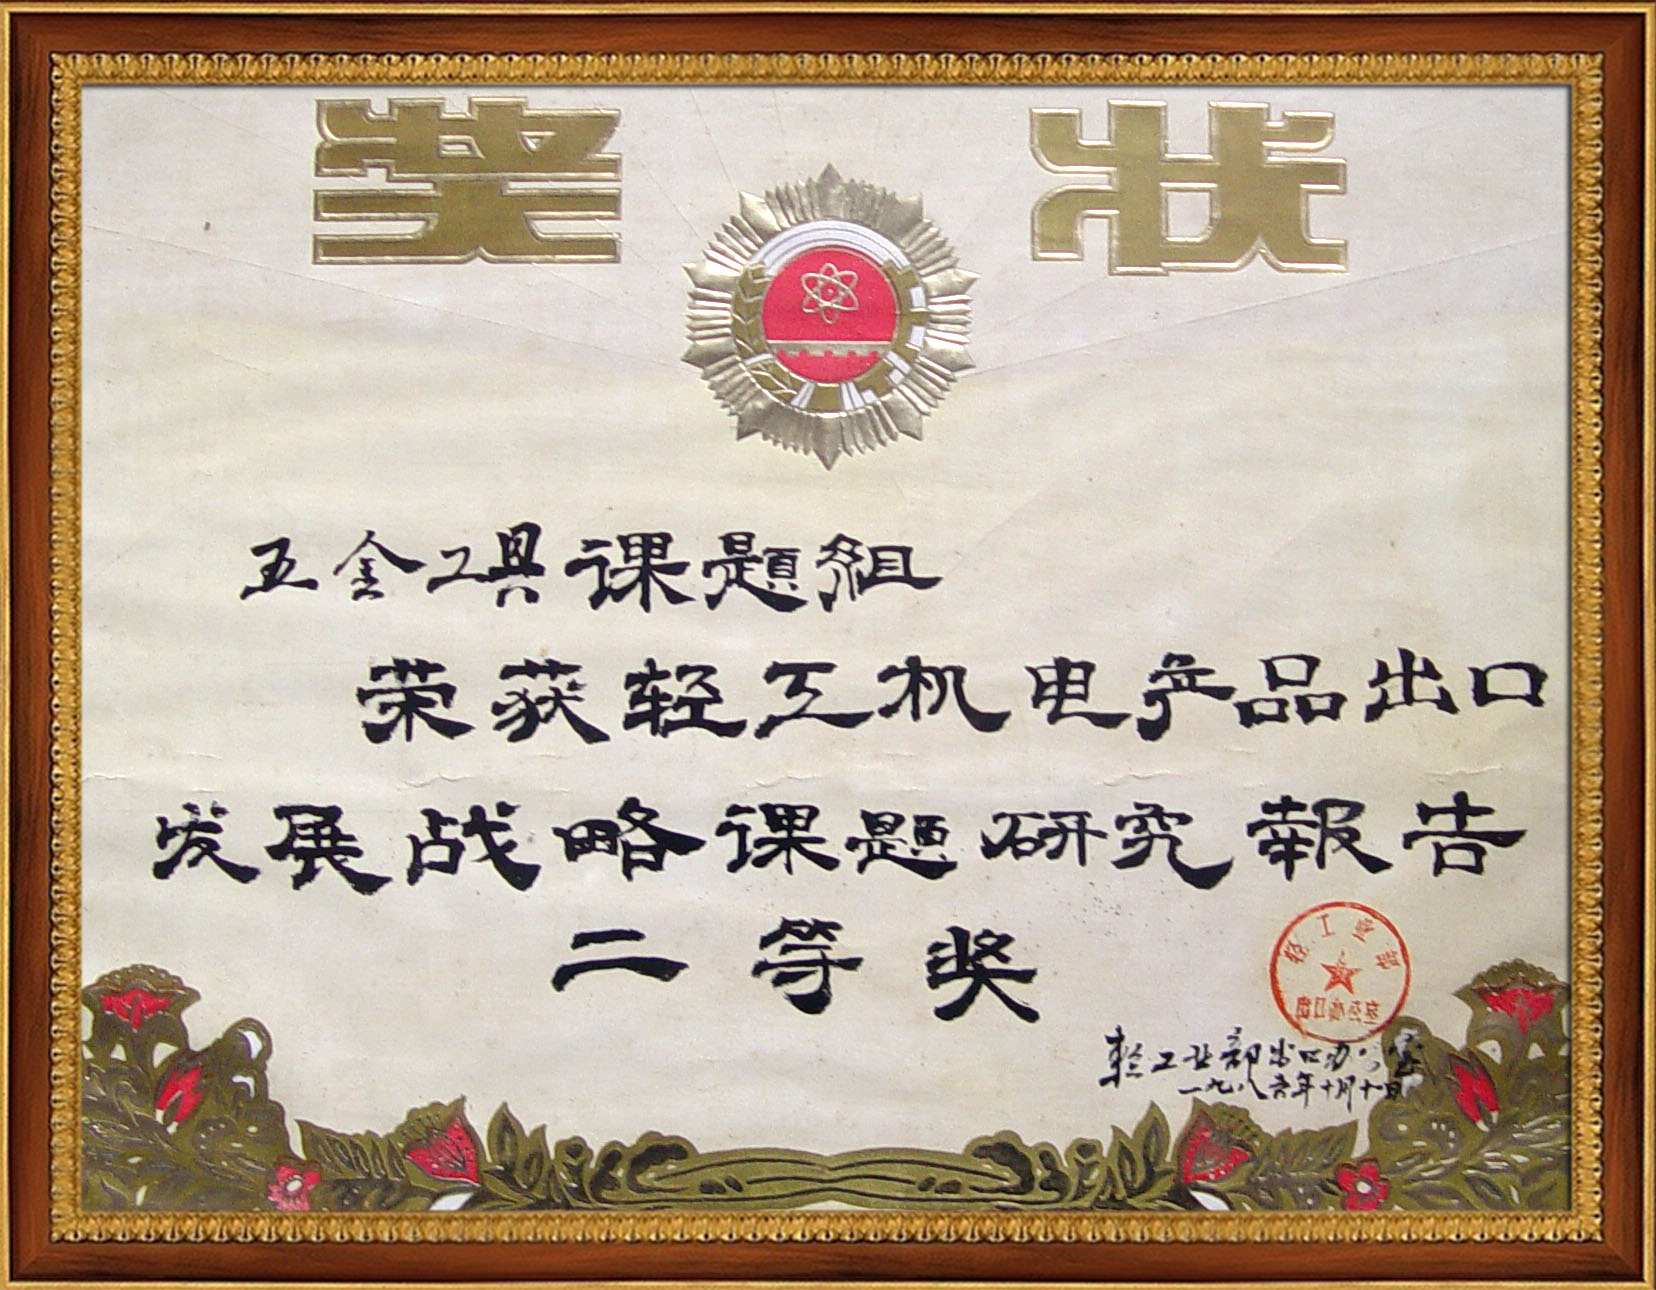 奖状
五金工具课题组
荣获轻工机电产品出口
发展战略课题研究報告
二等奖
轻工业部
出口办公室
轻工业部出口办公室
一九八六年十月十日